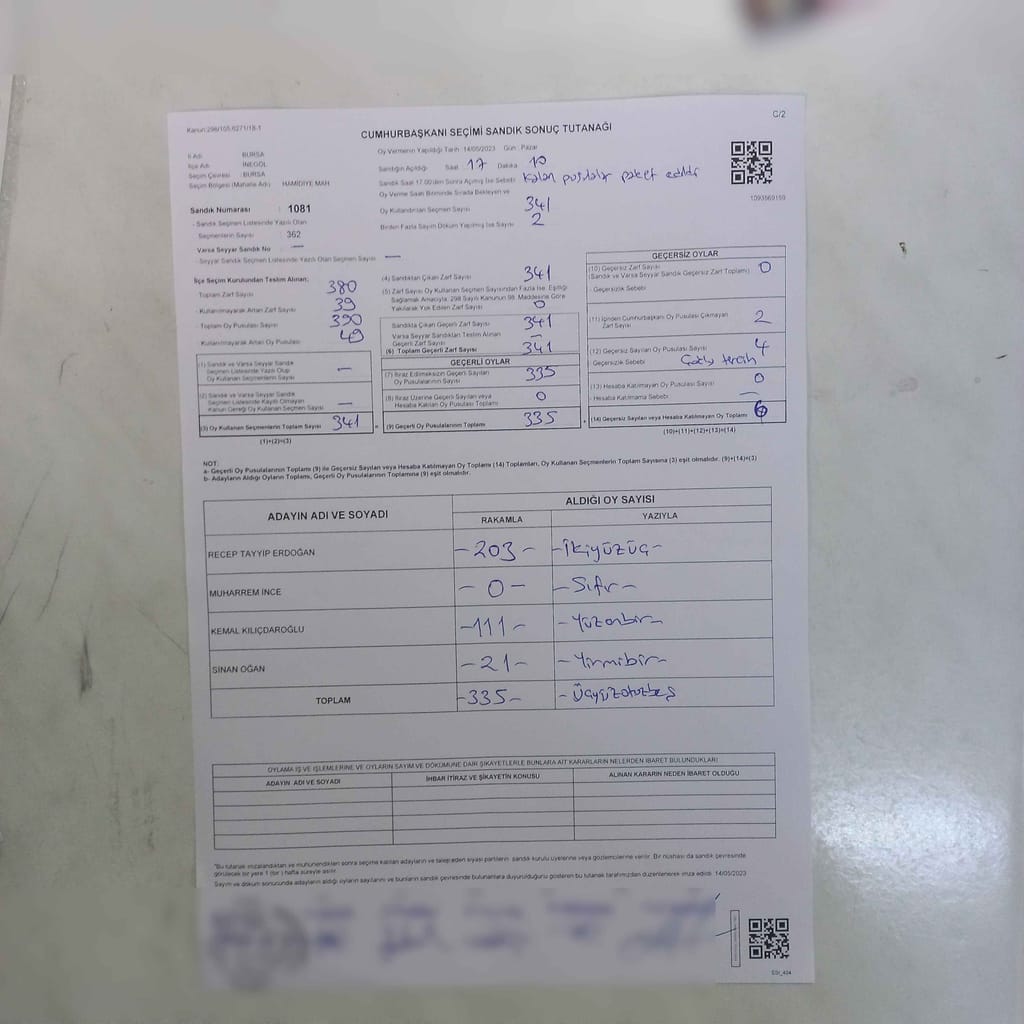 Kanun:298/105,6271/18-1
C/2
CUMHURBAŞKANI SEÇİMİ SANDIK SONUÇ TUTANAĞI
İl Adı : BURSA
İlçe Adı : İNEGÖL
Seçim Çevresi : BURSA
Seçim Bölgesi (Mahalle Adı) : HAMİDİYE MAH
Oy Vermenin Yapıldığı Tarih :14/05/2023 Gün : Pazar
Sandığın Açıldığı Saat 17 Dakika 10
Sandık Saat 17:00'den Sonra Açılmış İse Sebebi Kalan pusulalar paket edildi
Oy Verme Saati Bitiminde Sırada Bekleyen ve
Oy Kullandırılan Seçmen Sayısı 341
Birden Fazla Sayım Döküm Yapılmış İse Sayısı 2
1093569159
Sandık Numarası : 1081
- Sandık Seçmen Listesinde Yazılı Olan
Seçmenlerin Sayısı : 362
- Varsa Seyyar Sandık No : —
- Seyyar Sandık Seçmen Listesinde Yazılı Olan Seçmen Sayısı : —
İlçe Seçim Kurulundan Teslim Alınan;
Toplam Zarf Sayısı 380
- Kullanılmayarak Artan Zarf Sayısı 39
- Toplam Oy Pusulası Sayısı 390
- Kullanılmayarak Artan Oy Pusulası 49
(1) Sandık ve Varsa Seyyar Sandık
Seçmen Listesinde Yazılı Olup
Oy Kullanan Seçmenlerin Sayısı —
(2) Sandık ve Varsa Seyyar Sandık
Seçmen Listesinde Kayıtlı Olmayan
Kanun Gereği Oy Kullanan Seçmen Sayısı —
(3) Oy Kullanan Seçmenlerin Toplam Sayısı 341
(1)+(2)=(3)
(4) Sandıktan Çıkan Zarf Sayısı 341
(5) Zarf Sayısı Oy Kullanan Seçmen Sayısından Fazla İse, Eşitliği
Sağlamak Amacıyla, 298 Sayılı Kanunun 98. Maddesine Göre
Yakılarak Yok Edilen Zarf Sayısı 0
Sandıkta Çıkan Geçerli Zarf Sayısı 341
Varsa Seyyar Sandıktan Teslim Alınan
Geçerli Zarf Sayısı —
(6) Toplam Geçerli Zarf Sayısı 341
GEÇERLİ OYLAR
(7) İtiraz Edilmeksizin Geçerli Sayılan
Oy Pusulalarının Sayısı 335
(8) İtiraz Üzerine Geçerli Sayılan veya
Hesaba Katılan Oy Pusulalarının Sayısı 0
(9) Geçerli Oy Pusulalarının Toplamı 335
GEÇERSİZ OYLAR
(10) Geçersiz Zarf Sayısı
(Sandık ve Varsa Seyyar Sandık Geçersiz Zarf Toplamı) 0
- Geçersizlik Sebebi
(11) İçinden Cumhurbaşkanı Oy Pusulası Çıkmayan
Zarf Sayısı 2
(12) Geçersiz Sayılan Oy Pusulası Sayısı 4
- Geçersizlik Sebebi tercih
(13) Hesaba Katılmayan Oy Pusulası Sayısı 0
- Hesaba Katılmama Sebebi —
(14) Geçersiz Sayılan veya Hesaba Katılmayan Oy Toplamı 6
(10)+(11)+(12)+(13)=(14)
NOT:
a- Geçerli Oy Pusulalarının Toplamı (9) ile Geçersiz Sayılan veya Hesaba Katılmayan Oy Toplamı (14) Toplamları, Oy Kullanan Seçmenlerin Toplam Sayısına (3) eşit olmalıdır. (9)+(14)=(3)
b- Adayların Aldığı Oyların Toplamı, Geçerli Oy Pusulalarının Toplamına (9) eşit olmalıdır.
ADAYIN ADI VE SOYADI
ALDIĞI OY SAYISI
RAKAMLA YAZIYLA
RECEP TAYYİP ERDOĞAN -203- -İkiyüzüç-
MUHARREM İNCE -0- -Sıfır-
KEMAL KILIÇDAROĞLU -111- -Yüzonbir-
SİNAN OĞAN -21- -Yirmibir-
TOPLAM -335- -Üçyüzotuzbeş
OYLAMA İŞ VE İŞLEMLERİNE VE OYLARIN SAYIM VE DÖKÜMÜNE DAİR ŞİKAYETLERLE BUNLARA AİT KARARLARIN NELERDEN İBARET BULUNDUKLARI
ADAYIN ADI VE SOYADI İHBAR İTİRAZ VE ŞİKAYETİN KONUSU ALINAN KARARIN NEDEN İBARET OLDUĞU
"Bu tutanak imzalandıktan ve mühürlendikten sonra seçime katılan adayların ve talep eden siyasi partilerin sandık kurulu üyelerine veya gözlemcilerine verilir. Bir nüshası da sandık çevresinde
görülecek bir yere 1 (bir ) hafta süreyle asılır.
Sayım ve döküm sonucunda adayların aldığı oyların sayılarını ve bunların sandık çevresinde bulunanlara duyurulduğunu gösteren bu tutanak tarafımızdan düzenlenerek imza edildi. 14/05/2023